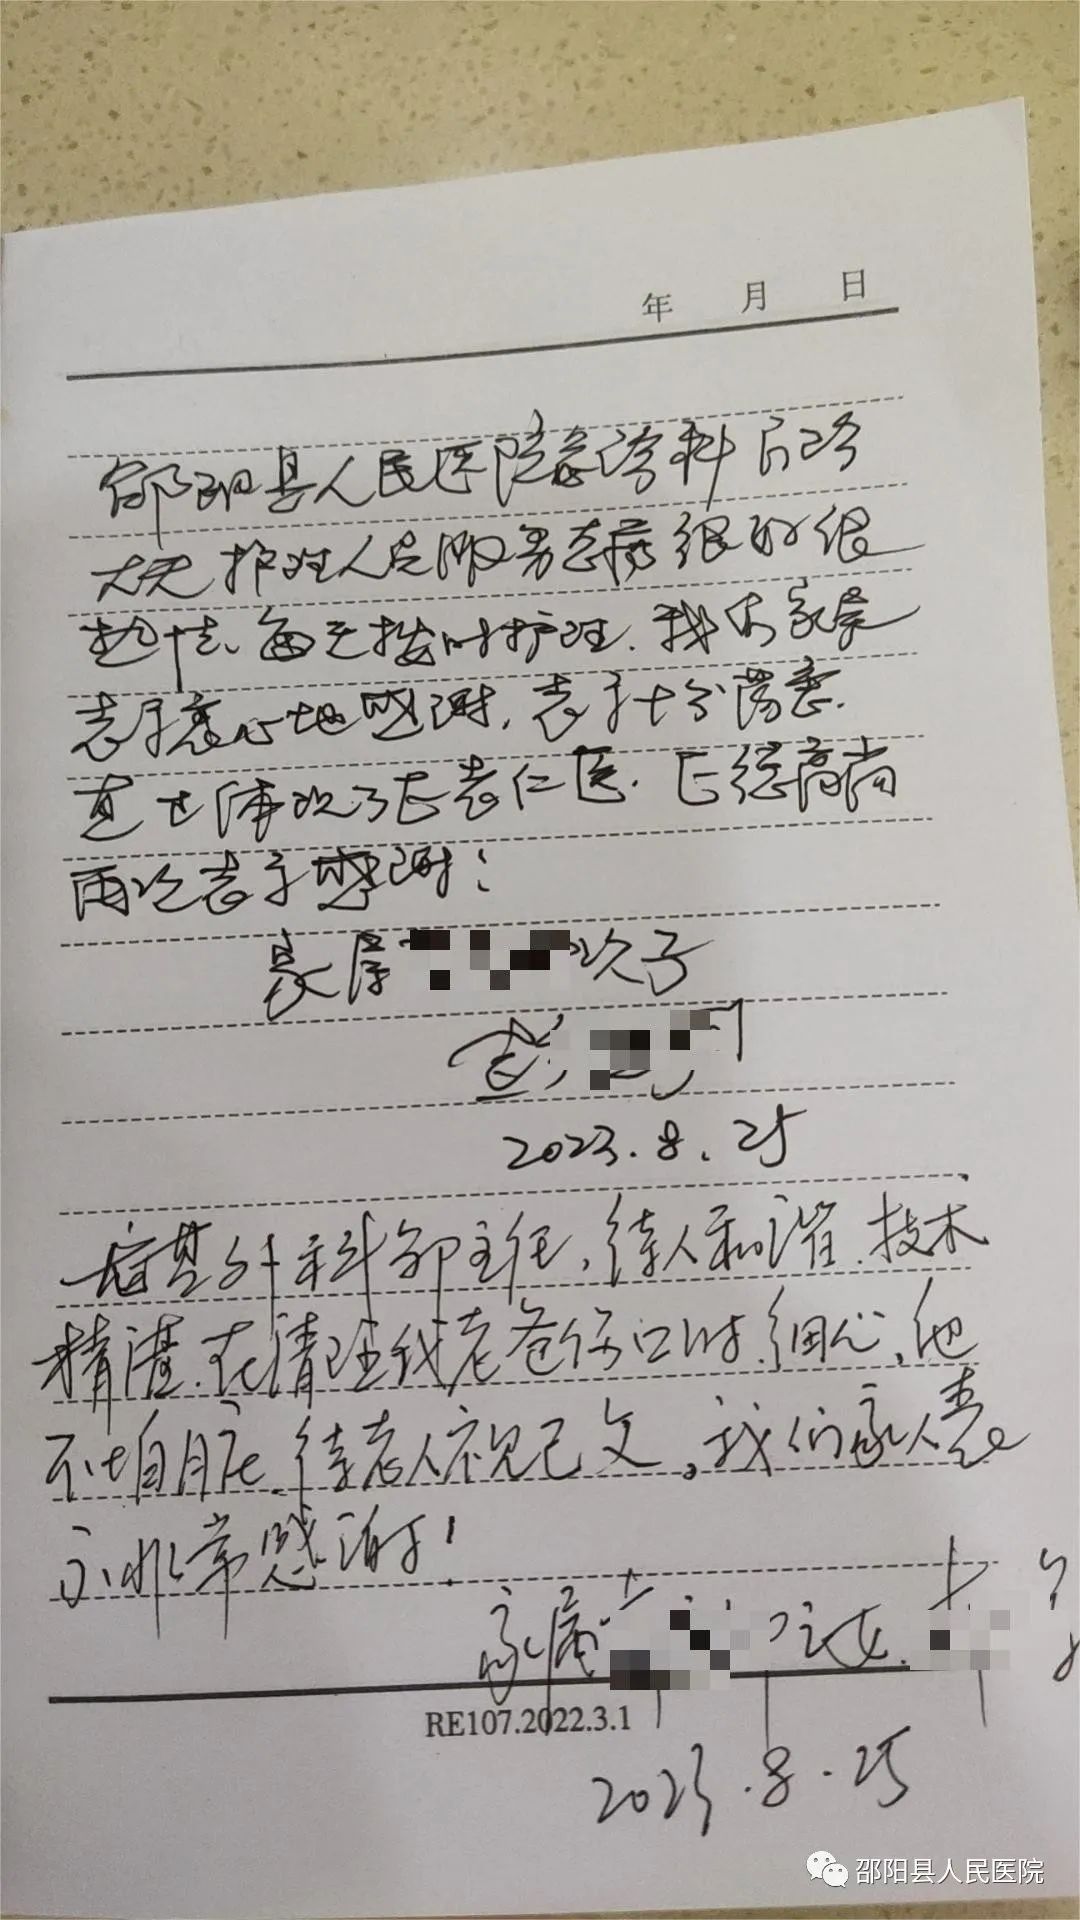 年 月 日
邵阳县人民医院急诊科
护理人员服务态度很好很
热情、每天按时护理.我
表示衷心地感谢,表示十分
体现了医者仁医.医德高尚
再次表示感谢!
家属 次子
2023.8.25
外科邹主任,待人和谐.技术
精湛.在清理我老爸伤口时.细心,他
不怕脏.待老人视己父。我们家人表
示非常感谢!
家属 之女.
RE107.2022.3.1
2023.8.25
邵阳县人民医院